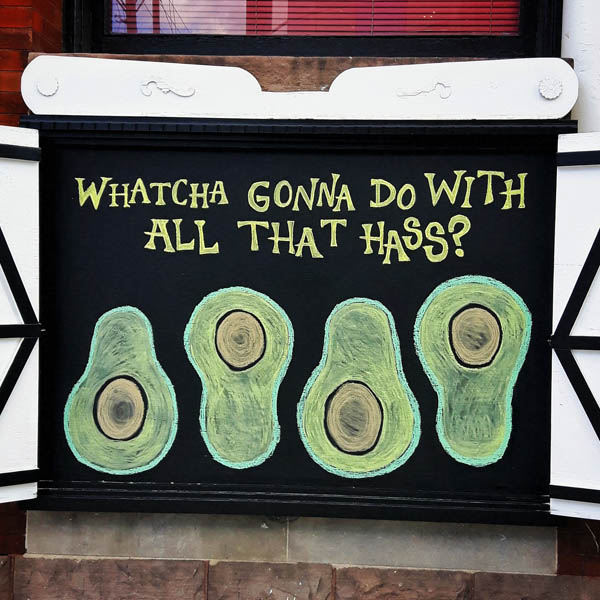 WHATCHA GONNA DO WITH
ALL THAT HASS?